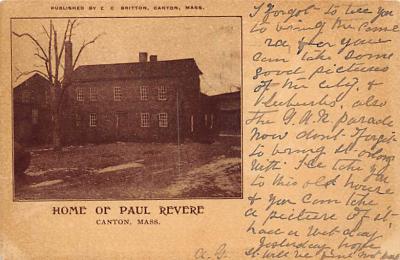 PUBLISHED BY E. C. BRITTON, CANTON, MASS.
HOME OF PAUL REVERE
CANTON, MASS.
I forgot to tell you
to bring the came
ra & for you
can take some
good pictures
of the city, &
suburbs, also
the G.A.R. Parade
Now dont forget
to bring it along
with I'll take you
to this old house
& you can take
a picture of it
had a wet day
yesterday hope
it will be fine